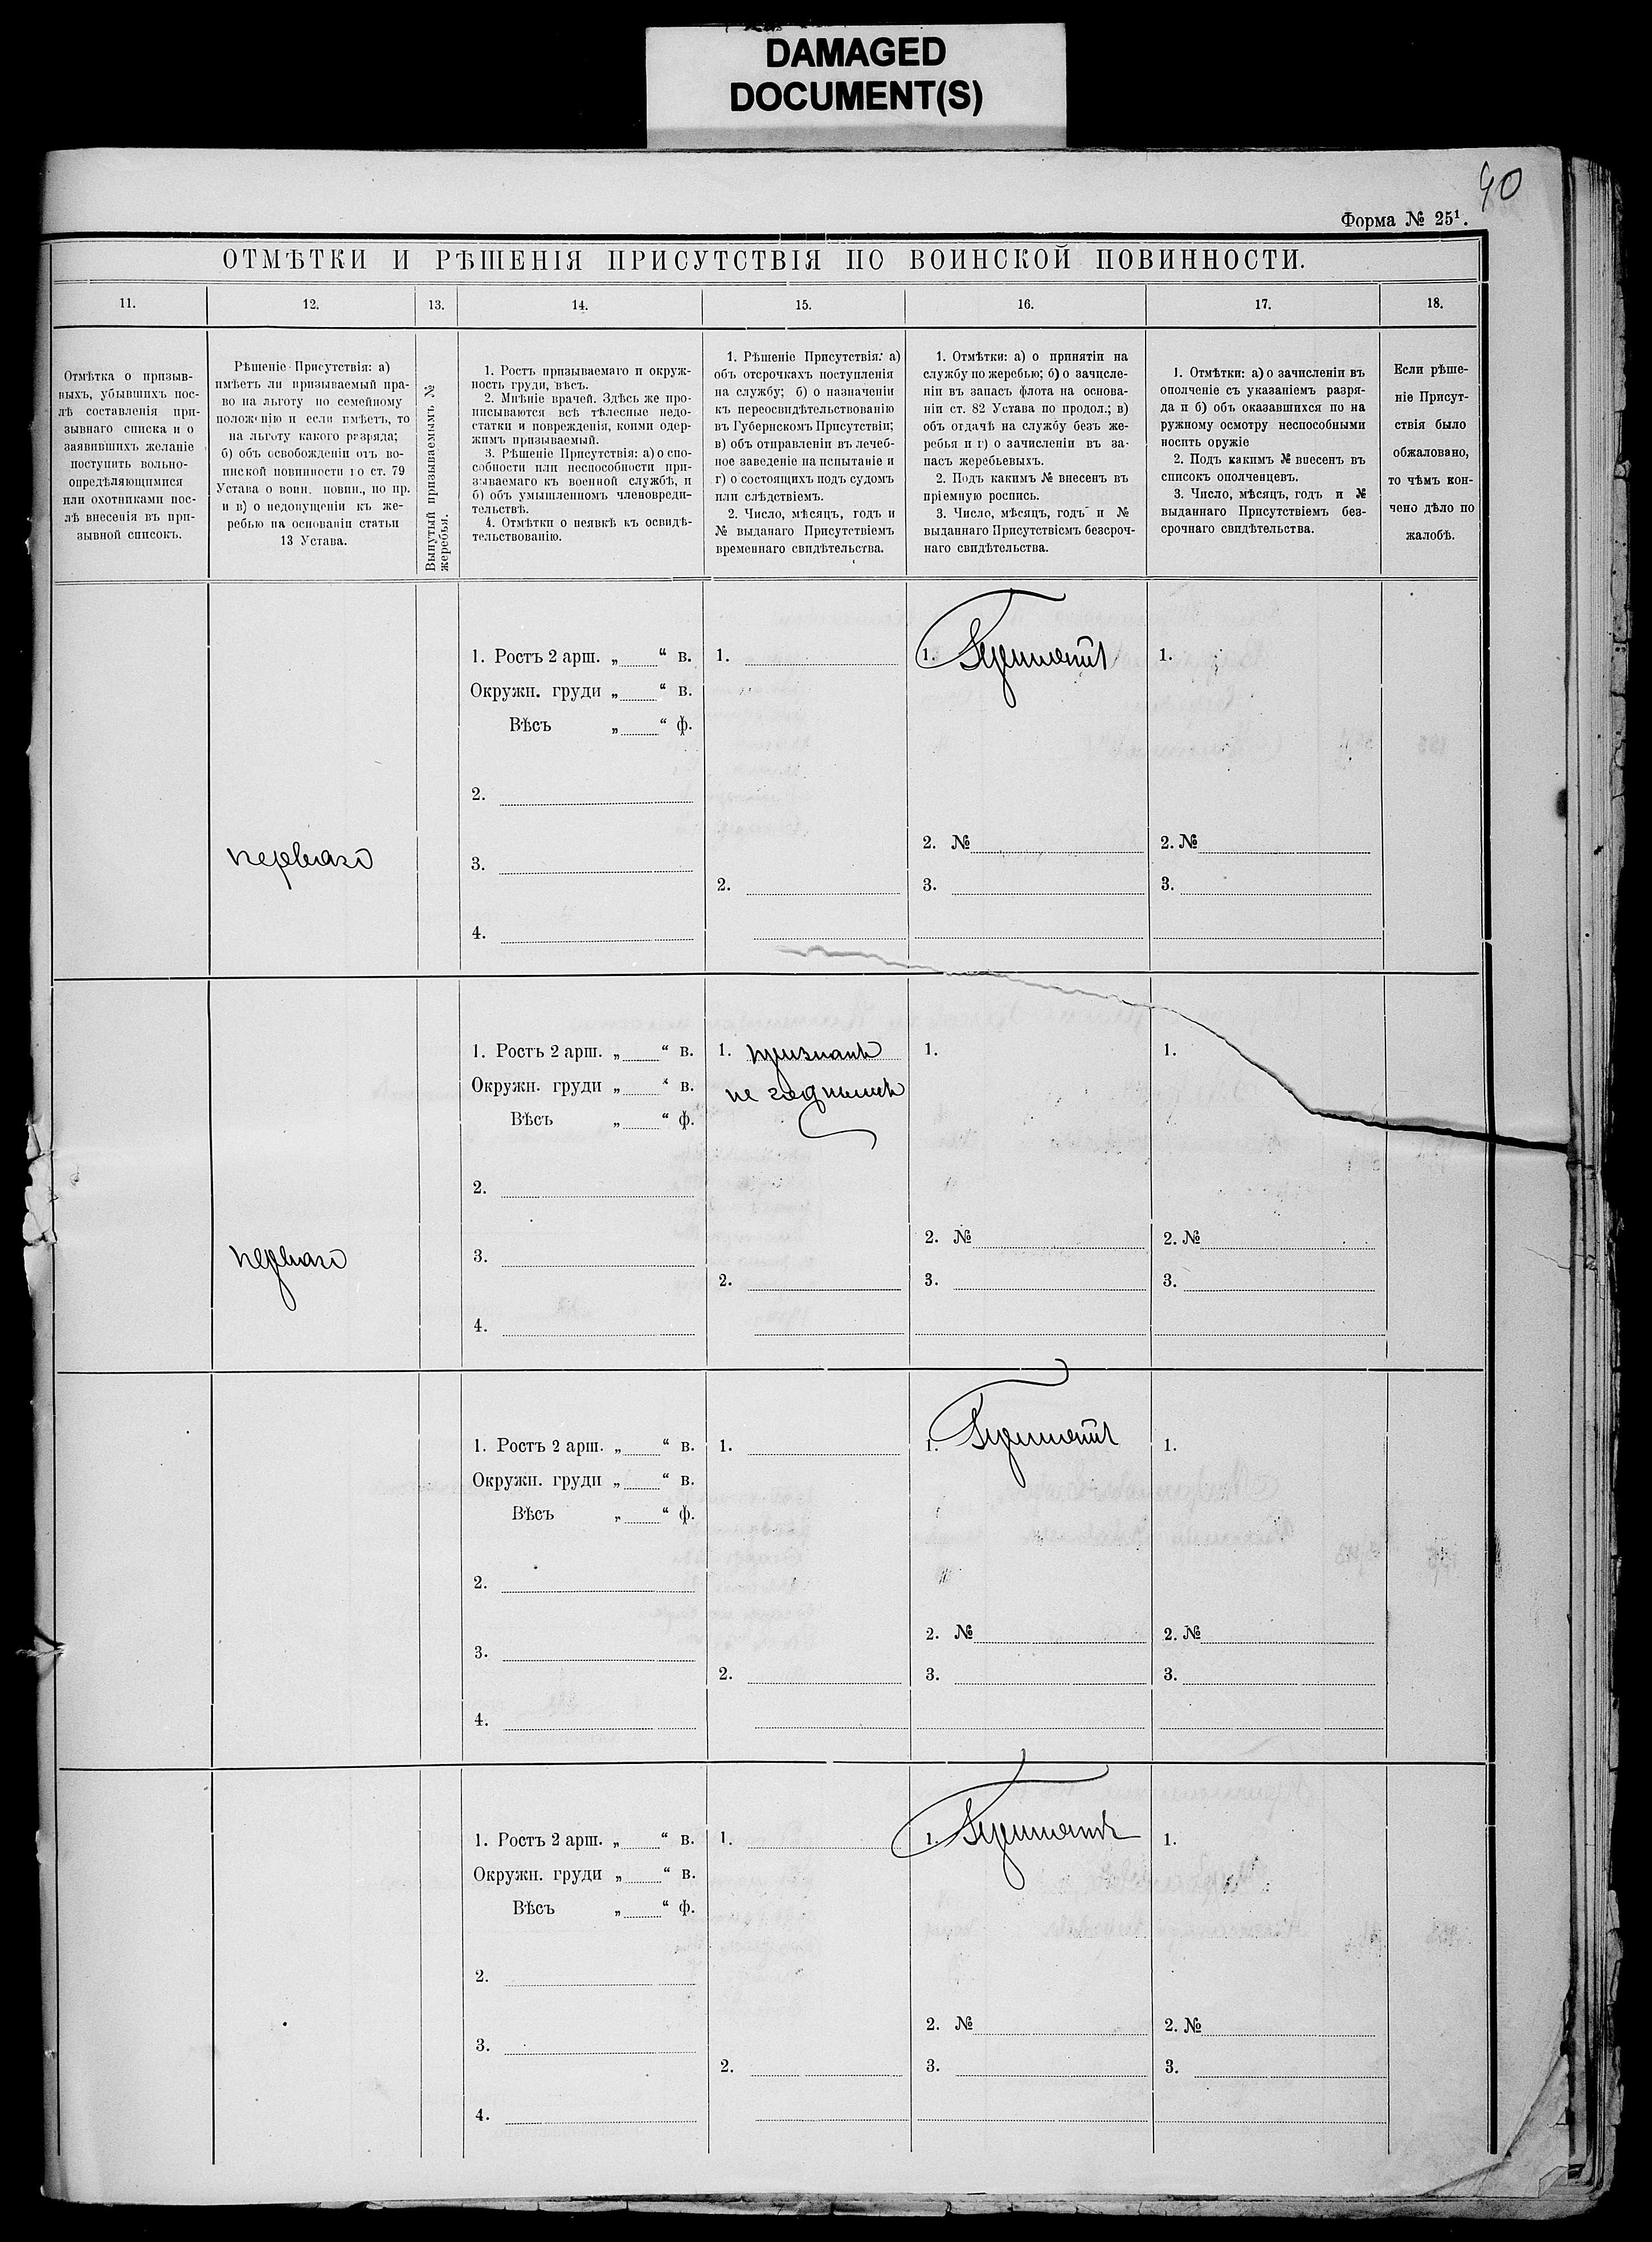 DAMAGED
DOCUMENT(S)
90
Форма № 25¹.
ОТМѢТКИ И РѢШЕНІЯ ПРИСУТСТВІЯ ПО ВОИНСКОЙ ПОВИННОСТИ.
11. 12. 13. 14. 15. 16. 17. 18.
Отмѣтка о призыв-
ныхъ, убывшихъ пос-
лѣ составленія при-
зывнаго списка и о
заявившихъ желаніе
поступить вольно-
опредѣляющимися
или охотниками пос-
лѣ внесенія въ при-
зывной списокъ.
Рѣшеніе Присутствія: а)
имѣетъ ли призываемый пра-
во на льготу по семейному
положенію и если имѣетъ, то
на льготу какого разряда;
б) объ освобожденіи отъ во-
инской повинности по ст. 79
Устава о воин. повин., по пр.
и в) о недопущеніи къ же-
ребью на основаніи статьи
13 Устава.
Вынутый призываемымъ №
жеребья.
1. Ростъ призываемаго и окруж-
ность груди, вѣсъ.
2. Мнѣніе врачей. Здѣсь же про-
писываются всѣ тѣлесные недо-
статки и поврежденія, коими одер-
жимъ призываемый.
3. Рѣшеніе Присутствія: а) о спо-
собности или неспособности при-
зываемаго къ военной службѣ, и
б) объ умышленномъ членовреди-
тельствѣ.
4. Отмѣтки о неявкѣ къ освидѣ-
тельствованію.
1. Рѣшеніе Присутствія: а)
объ отсрочкахъ поступленія
на службу; б) о назначеніи
къ переосвидѣтельствованію
въ Губернскомъ Присутствіи;
в) объ отправленіи въ лечеб-
ное заведеніе на испытаніе и
г) о состоящихъ подъ судомъ
или слѣдствіемъ.
2. Число, мѣсяцъ, годъ и
№ выданаго Присутствіемъ
временнаго свидѣтельства.
1. Отмѣтки: а) о принятіи на
службу по жеребью; б) о зачисле-
ніи въ запасъ флота на основа-
ніи ст. 82 Устава по продол.; в)
объ отдачѣ на службу безъ же-
ребья и г) о зачисленіи въ за-
пасъ жеребьевыхъ.
2. Подъ какимъ № внесенъ въ
пріемную роспись.
3. Число, мѣсяцъ, годъ и №
выданнаго Присутствіемъ безсроч-
наго свидѣтельства.
1. Отмѣтки: а) о зачисленіи въ
ополченіе съ указаніемъ разря-
да и б) объ оказавшихся по на
ружному осмотру неспособными
носить оружіе
2. Подъ какимъ № внесенъ въ
списокъ ополченцевъ.
3. Число, мѣсяцъ, годъ и №
выданнаго Присутствіемъ без-
срочнаго свидѣтельства.
Если рѣше-
ніе Присут-
ствія было
обжаловано,
то чѣмъ кон-
чено дѣло по
жалобѣ.
1. Ростъ 2 арш. „ “ в. 1. 1. 1.
Окружн. груди „ “ в.
Вѣсъ „ “ ф.
2.
2. № 2. №
перваго
3.
2. 3. 3.
4.
1. Ростъ 2 арш. „ “ в. 1. признанъ 1. 1.
Окружн. груди „ “ в. не годнымъ
Вѣсъ „ “ ф.
2.
2. № 2. №
перваго
3.
2. 3. 3.
4.
1. Ростъ 2 арш. „ “ в. 1. 1. 1.
Окружн. груди „ “ в.
Вѣсъ „ “ ф.
2.
2. № 2. №
3.
2. 3. 3.
4.
1. Ростъ 2 арш. „ “ в. 1. 1. 1.
Окружн. груди „ “ в.
Вѣсъ „ “ ф.
2.
2. № 2. №
3.
2. 3. 3.
4.